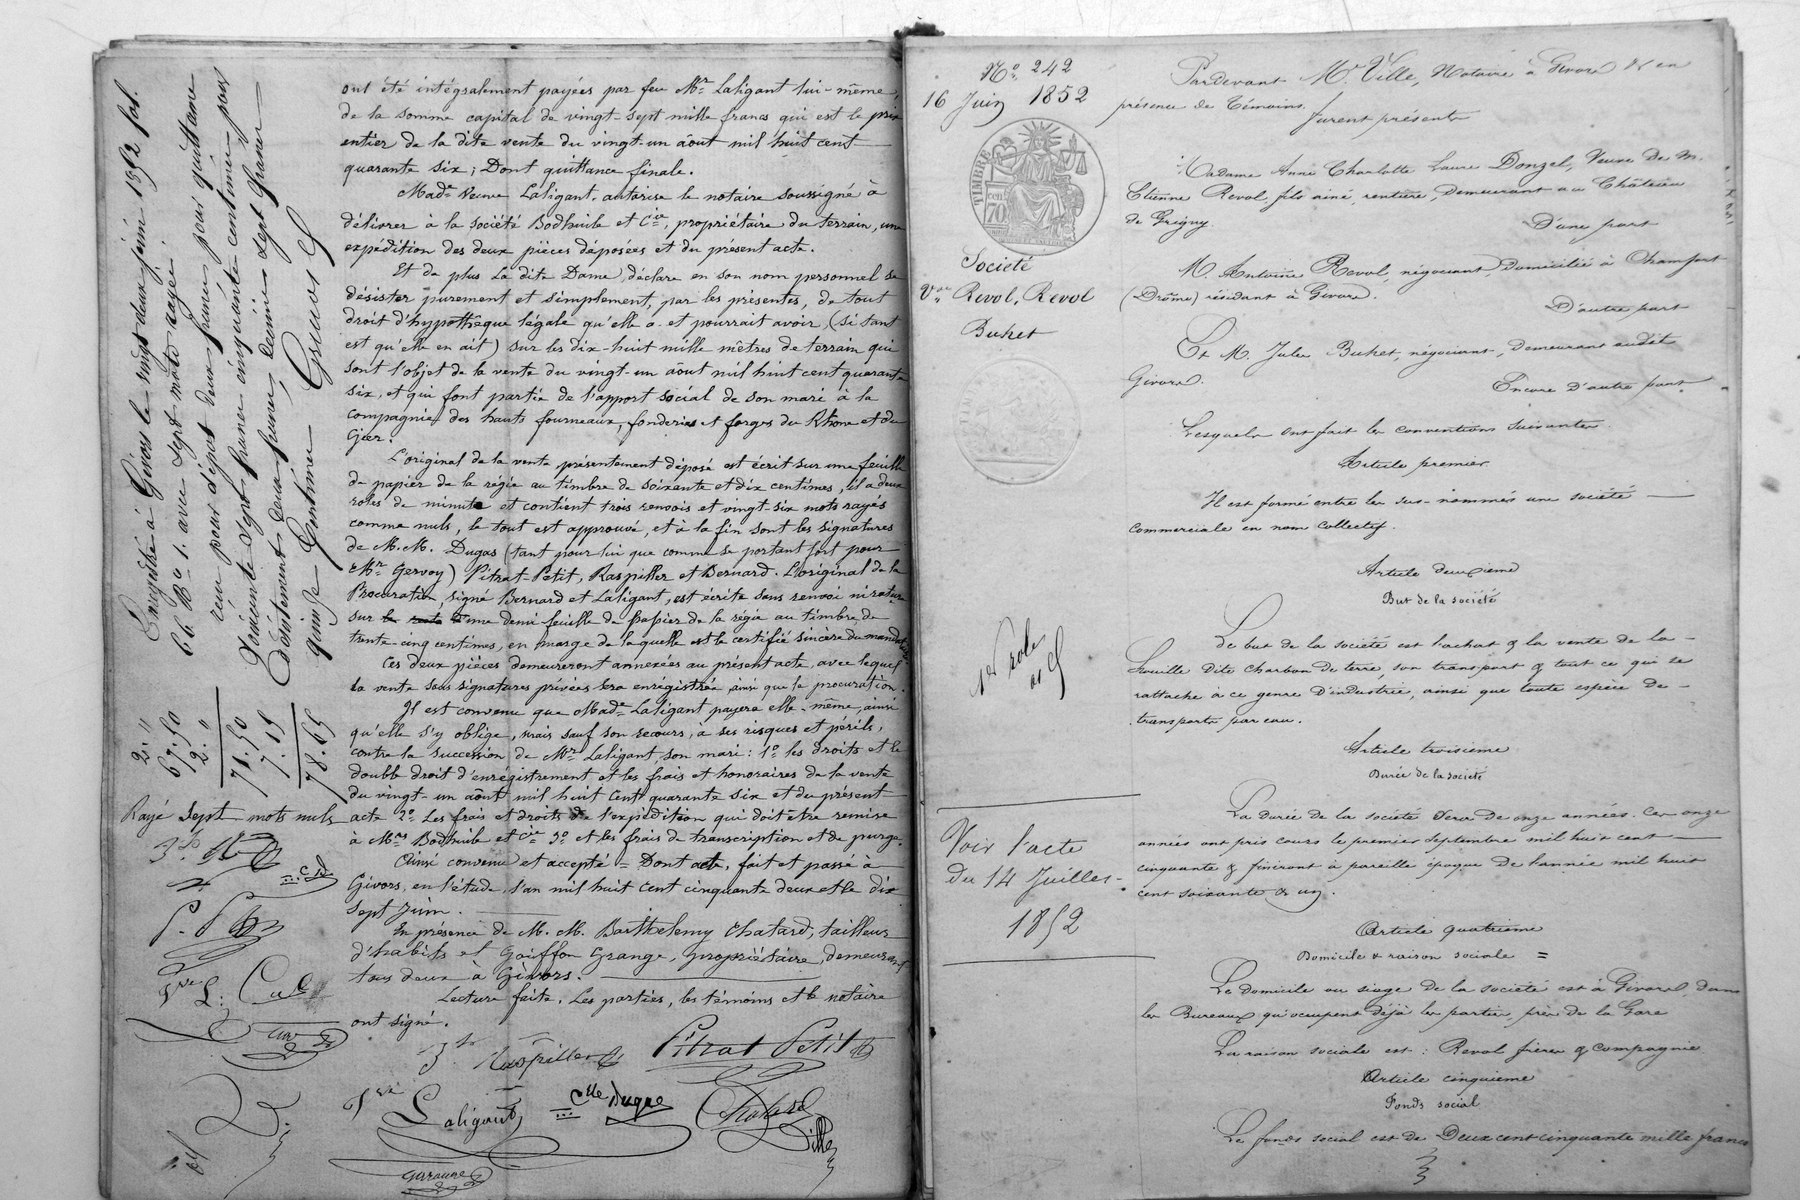 ont été intégralement payées par feu Mr Laligant lui-même,
de la somme capital de vingt-sept mille francs qui est le prix
entier de la dite vente du vingt-un août mil huit cent
quarante six ; Dont quittance finale.
Made Veuve Laligant, autorise le notaire soussigné à
délivrer à la société Bodhuile et Cie, propriétaire du terrain, une
expédition des deux pièces déposées et du présent acte.
Et de plus la dite Dame, déclare en son nom personnel se
désister purement et simplement, par les présentes, de tout
droit d'hypothèque légale qu'elle a et pourrait avoir, (si tant
est qu'elle en ait) sur les dix-huit mille mètres de terrain qui
sont l'objet de la vente du vingt-un aout mil huit cent quarante
six, et qui font partie de l'apport social de son mari à la
compagnie des hauts fourneaux, fonderies et forges du Rhône et du
Gier.
L'original de la vente présentement déposé est écrit sur une feuille
de papier de la régie au timbre de soixante et dix centimes, il a deux
roles de minute et contient trois renvois et vingt-six mots rayés
comme nuls, le tout est approuvé, et à la fin sont les signatures
de M.M. Dugas (tant pour lui que comme se portant fort pour
Mr Gervoy) Pitrat-Petit, Raspiller et Bernard. L'original de la
Procuration, signé Bernard et Laligant, est écrite sans renvoi ni rature
sur une demi feuille de papier de la régie au timbre de
trente-cinq centimes, en marge de laquelle est le certifié sincère du mandataire
Ces deux pièces demeureront annexées au présent acte, avec lequel
la vente sous signatures privées sera enrégistrée ainsi que la procuration.
Il est convenu que Made Laligant payera elle-même, ainsi
qu'elle s'y oblige, mais sauf son recours, à ses risques et périls,
contre la succession de Mr Laligant, son mari : 1o les droits et le
double droit d'enrégistrement et les frais et honoraires de la vente
du vingt-un août mil huit cent quarante six et du présent
acte 2o Les frais et droits de l'expédition qui doit être remise
à Mrs Bodhuile et Cie 3o et les frais de transcription et de purge.
Ainsi convenu et accepté = Dont acte, fait et passé à
Givors, en l'étude, l'an mil huit cent cinquante deux et le dix
sept Juin.
En présence de M. M. Barthelemy Chatard, tailleur
d'habits et Goiffon Grange, propriétaire, demeurant
tous deux à Givors.
Lecture faite, Les parties, les témoins et le notaire
ont signé.
Raspiller
Pitrat Petit
Vve Laligant
Clle Dugas
Chatard
Ville
Enregistré à Givors le vingt deux juin 1852 fol.
66 Ro c. 1. avec sept mots rayés.
reçu pour dépot deux francs, pour quittance
Soixante sept francs cinquante centimes, pour
Désistement deux francs, décime sept francs
quinze centimes
2. "
67. 50
2. "
71. 50
7. 15
78. 65
Rayé sept mots nuls
No 242
16 Juin 1852
TIMBRE
70
Société
Vve Revol, Revol
Buhet
1er role
Voir l'acte
du 14 Juillet
1852
Pardevant Me Ville, Notaire à Givors & en
présence de Témoins.
furent présents
Madame Anne Charlotte Laure Donzel, Veuve de M.
Etienne Revol, fils ainé, rentière, demeurant au Château
de Grigny.
D'une part
M. Antoine Revol, négociant, domicilié à Champfort
(Drôme) résidant à Givors.
D'autre part
Et M. Jules Buhet, négociant, demeurant audit
Givors.
Encore d'autre part
Lesquels ont fait les conventions suivantes.
Article premier.
Il est formé entre les sus-nommés une société
commerciale en nom collectif.
Article deuxième
But de la société
Le but de la société est l'achat & la vente de la
houille dite charbon de terre, son transport & tout ce qui se
rattache à ce genre d'industrie, ainsi que toute espèce de
transports par eau.
Article troisième
Durée de la société
La durée de la société sera de onze années. Ces onze
années ont pris cours le premier septembre mil huit cent
cinquante & finiront à pareille époque de l'année mil huit
cent soixante & un.
Article quatrième
Domicile & raison sociale =
Le domicile ou siège de la société est à Givors, dans
les Bureaux qu'occupent déjà les parties, près de la Gare
La raison sociale est : Revol frères & compagnie
Article cinquième
Fonds social
Le fonds social est de Deux cent cinquante mille francs